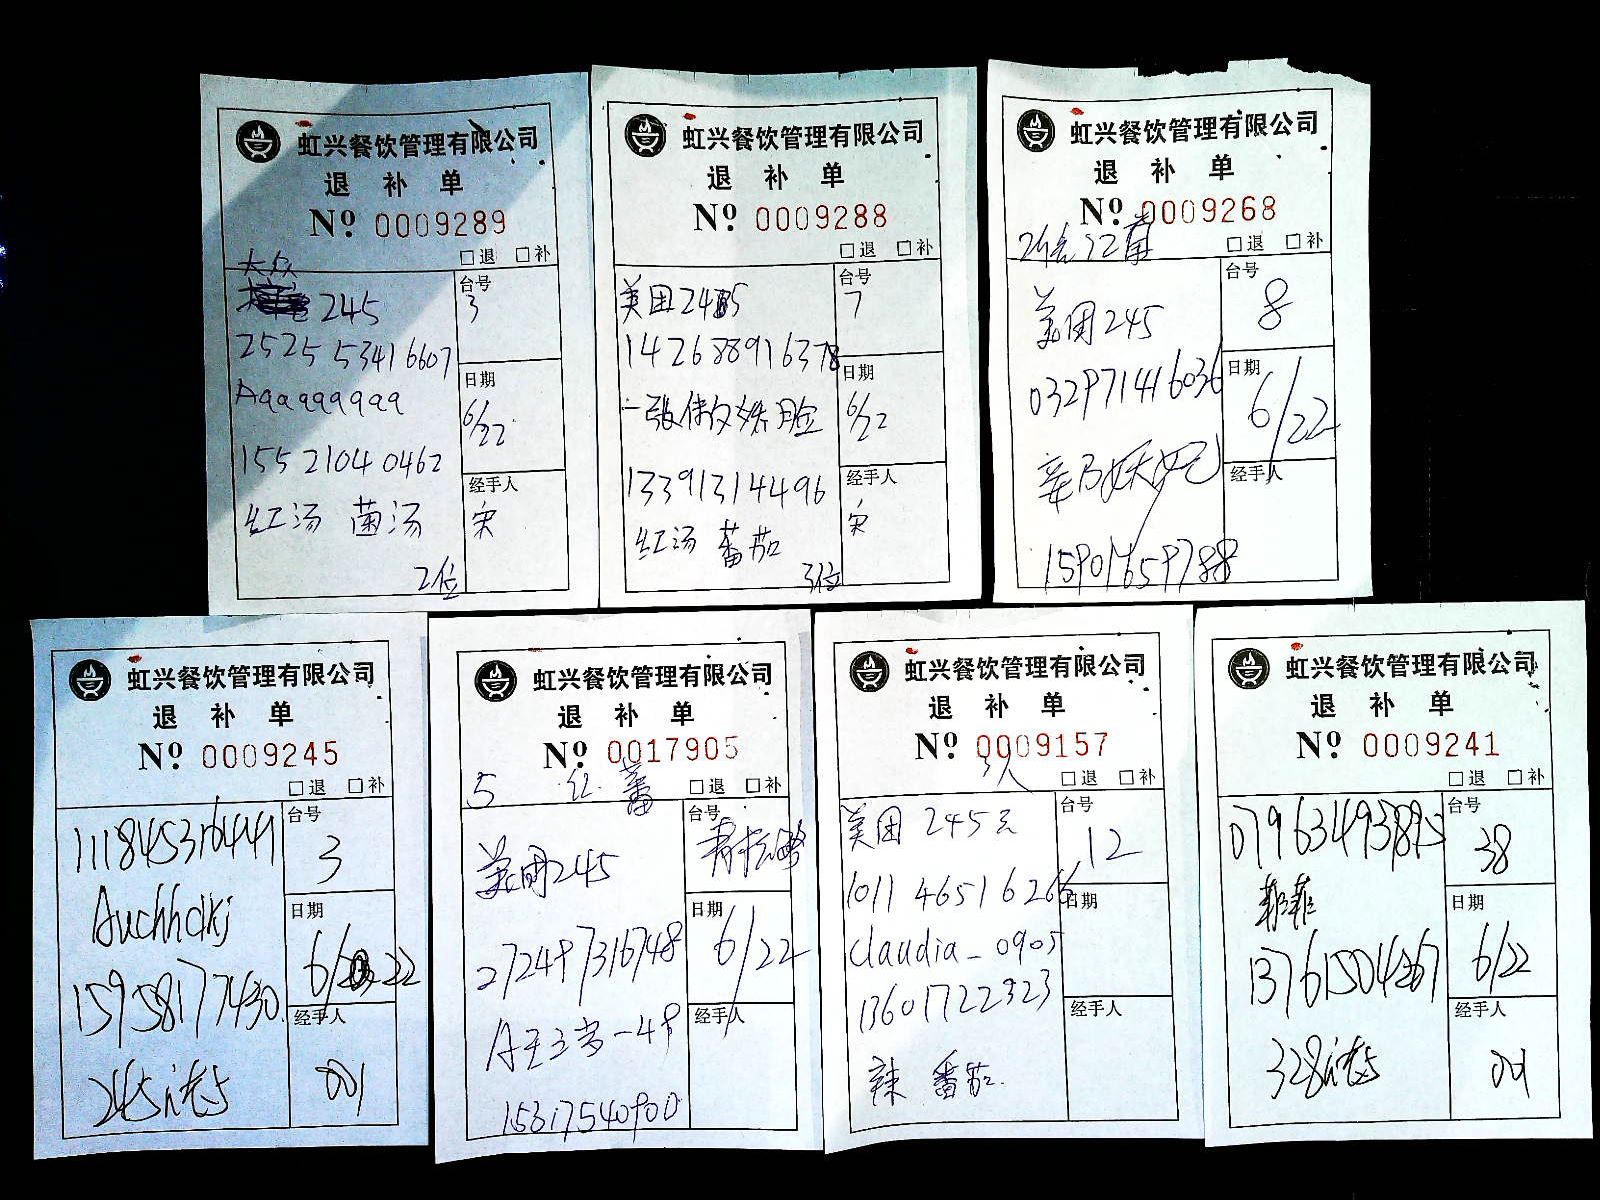 虹兴餐饮管理有限公司
退 补 单
Nº 0009289
□退 □补
大众
245
台号
3
2525 5341 6607
Aqqqqqqqq
日期
6/22
155 2104 0462
红汤 菌汤
经手人
宋
2位
虹兴餐饮管理有限公司
退 补 单
Nº 0009288
□退 □补
美团245
台号
7
142688916378
一张伟多姝脸
日期
6/22
13391314496
红汤 番茄
经手人
宋
3位
虹兴餐饮管理有限公司
退 补 单
Nº 0009268
2位 红菌
□退 □补
美团245
台号
8
032971416036
日期
6/22
妖妃
经手人
15901659788
虹兴餐饮管理有限公司
退 补 单
Nº 0009245
□退 □补
台号
3
Auchhdkj
日期
6/22
15958177430
经手人
001
245
虹兴餐饮管理有限公司
退 补 单
Nº 0017905
5 红 蕃
□退 □补
美团245
台号
272497316748
日期
6/22
经手人
15317540900
虹兴餐饮管理有限公司
退 补 单
Nº 0009157
3人
□退 □补
美团 245元
台号
12
1011 46516266
日期
Claudia_0905
13601722323
经手人
辣 番茄
虹兴餐饮管理有限公司
退 补 单
Nº 0009241
□退 □补
台号
38
菲菲
日期
6/22
13761504267
经手人
001
328